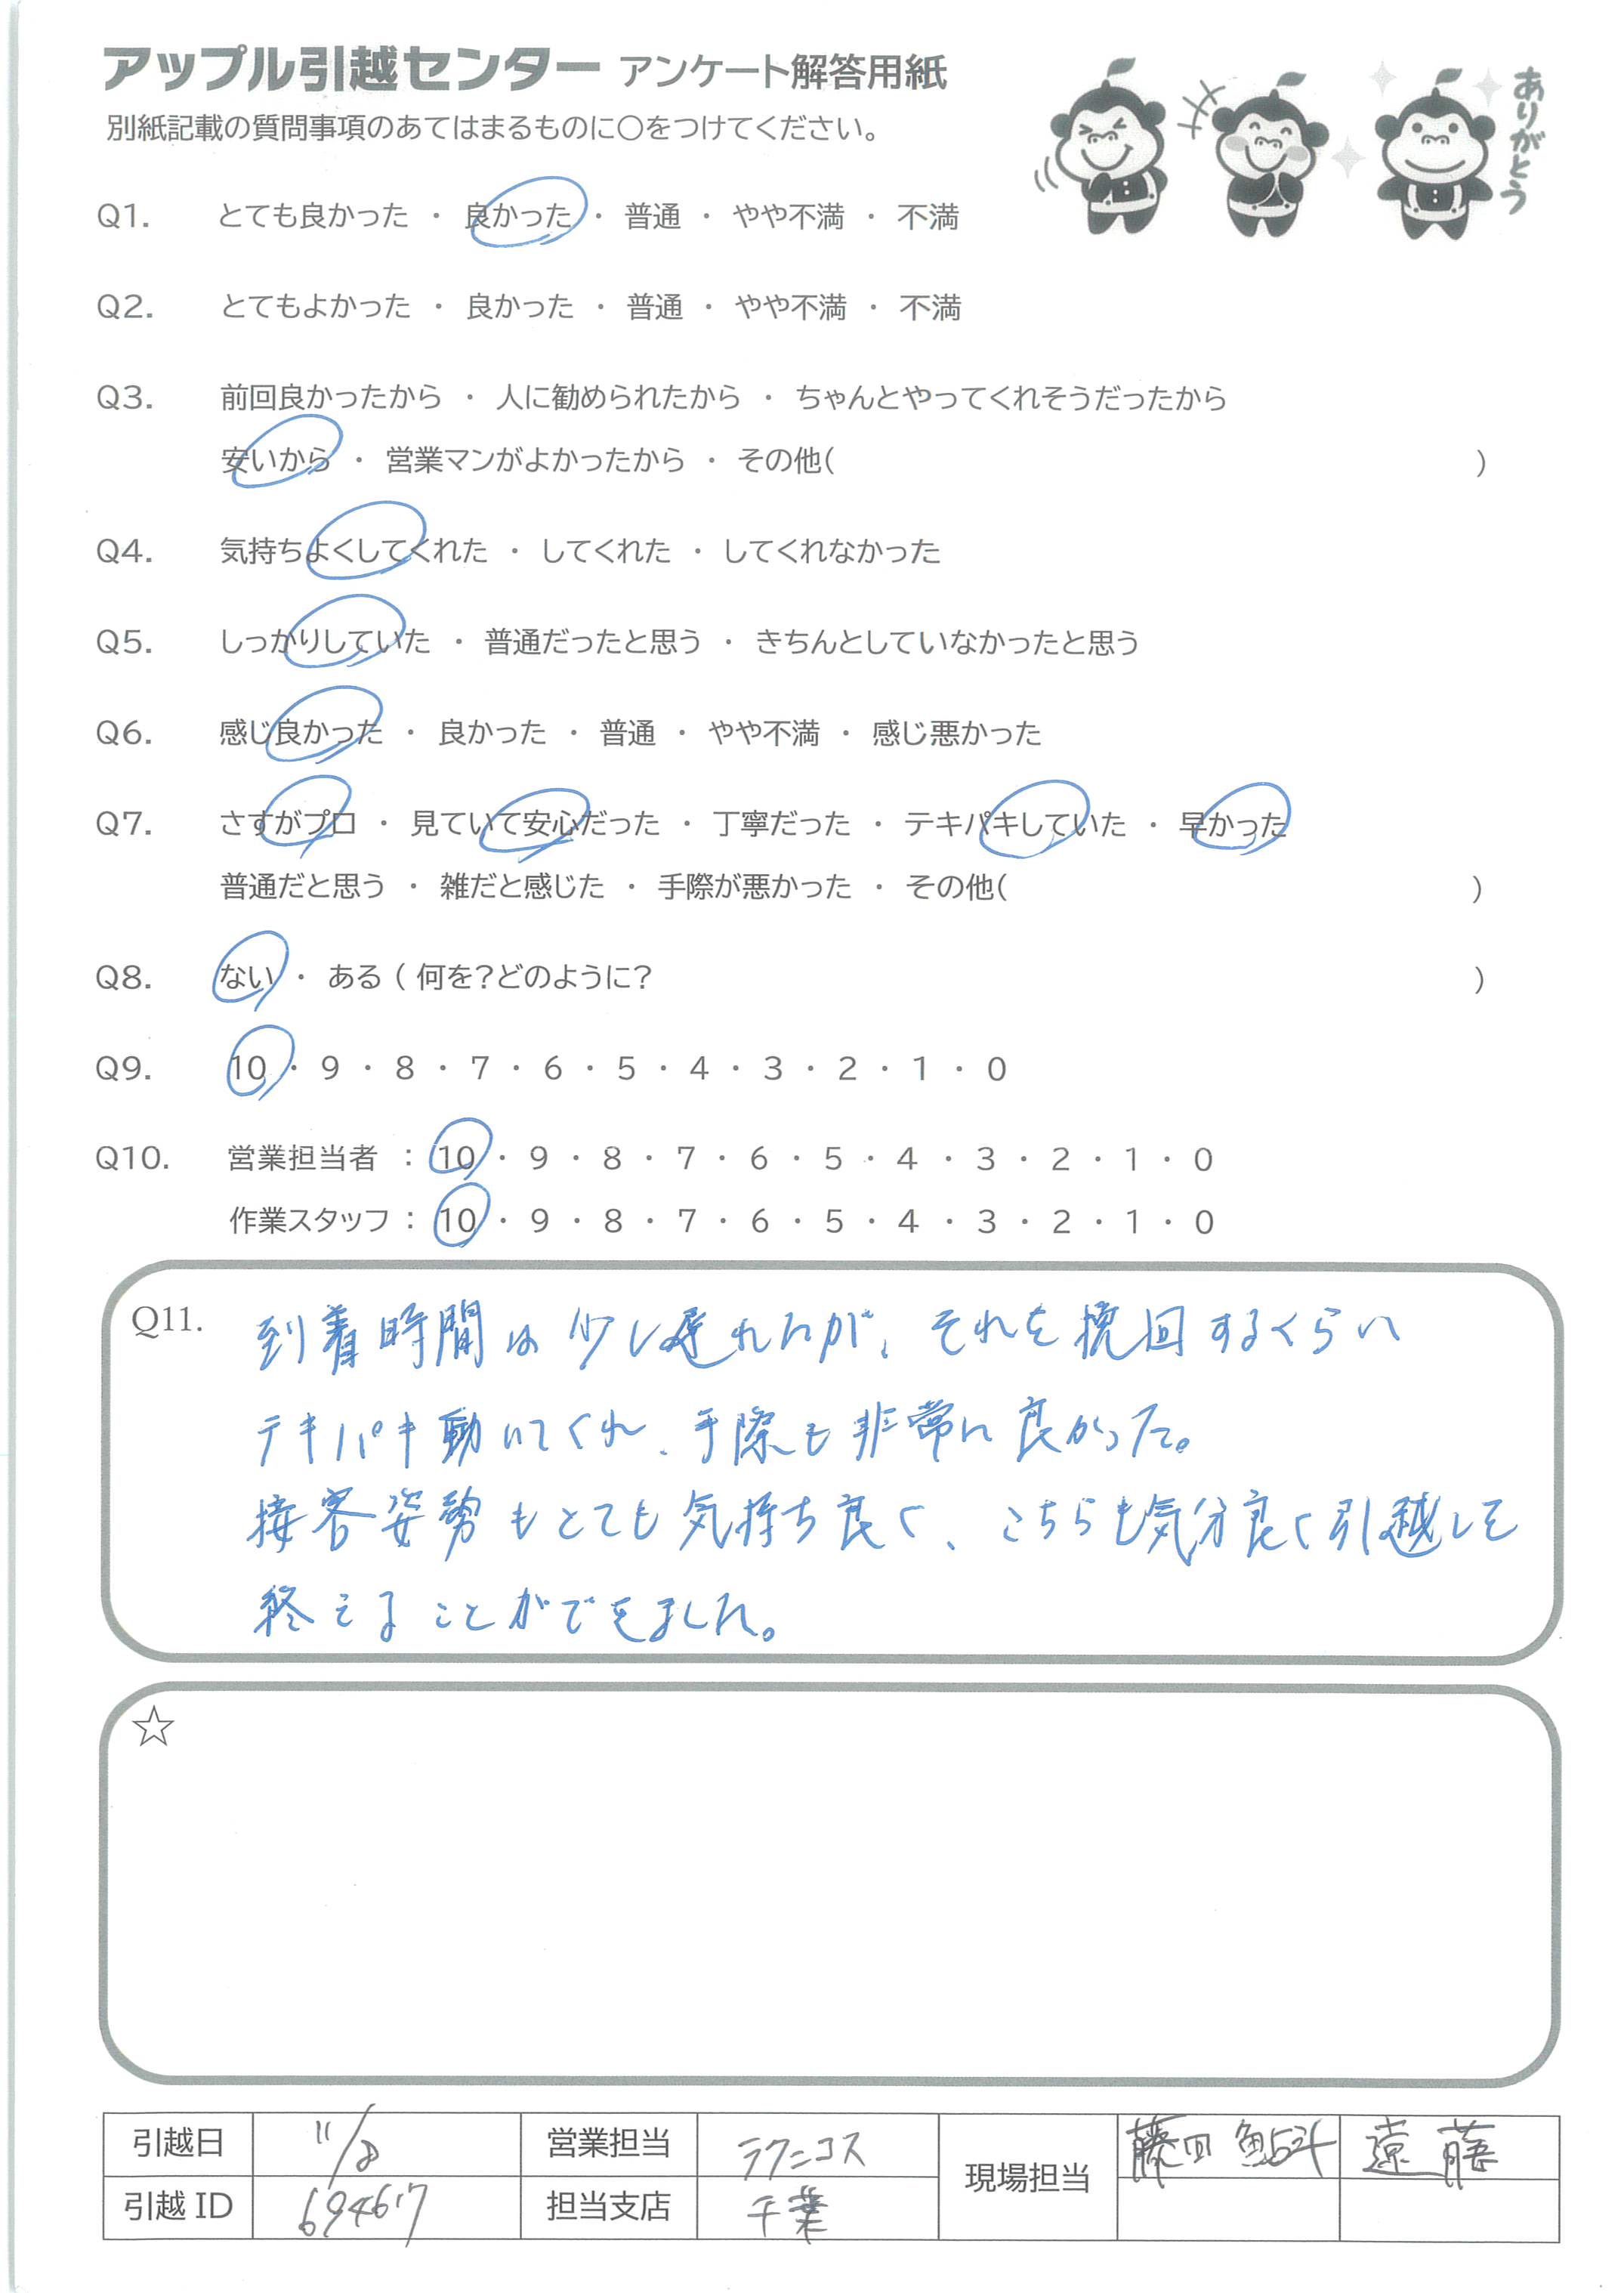 アップル引越センター アンケート解答用紙
別紙記載の質問事項のあてはまるものに○をつけてください。
ありがとう
Q1. とても良かった ・ 良かった ・ 普通 ・ やや不満 ・ 不満
Q2. とてもよかった ・ 良かった ・ 普通 ・ やや不満 ・ 不満
Q3. 前回良かったから ・ 人に勧められたから ・ ちゃんとやってくれそうだったから
安いから ・ 営業マンがよかったから ・ その他( )
Q4. 気持ちよくしてくれた ・ してくれた ・ してくれなかった
Q5. しっかりしていた ・ 普通だったと思う ・ きちんとしていなかったと思う
Q6. 感じ良かった ・ 良かった ・ 普通 ・ やや不満 ・ 感じ悪かった
Q7. さすがプロ ・ 見ていて安心だった ・ 丁寧だった ・ テキパキしていた ・ 早かった
普通だと思う ・ 雑だと感じた ・ 手際が悪かった ・ その他( )
Q8. ない ・ ある ( 何を?どのように? )
Q9. 10 ・ 9 ・ 8 ・ 7 ・ 6 ・ 5 ・ 4 ・ 3 ・ 2 ・ 1 ・ 0
Q10. 営業担当者 : 10 ・ 9 ・ 8 ・ 7 ・ 6 ・ 5 ・ 4 ・ 3 ・ 2 ・ 1 ・ 0
作業スタッフ : 10 ・ 9 ・ 8 ・ 7 ・ 6 ・ 5 ・ 4 ・ 3 ・ 2 ・ 1 ・ 0
Q11. 到着時間は少し遅れたが、それを挽回するくらい
テキパキ動いてくれ、手際も非常に良かった。
接客姿勢もとても気持ち良く、こちらも気分良く引越しを
終えることができました。
☆
引越日 11/8 営業担当 ラクニコス 現場担当 藤田 遠藤
引越 ID 694617 担当支店 千葉